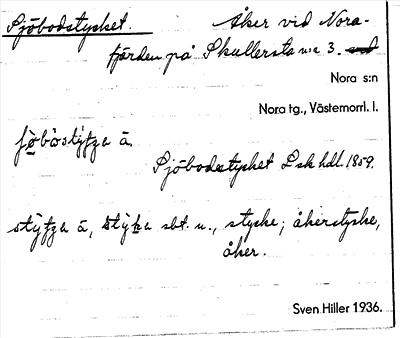 Sjöbodstycket. Åker vid Nora-
fjärden på Skullersta n:o 3.
Nora s:n
Nora tg., Västernorrl. l.
ʃö̀bòstýtʃa ā.
Sjöbodstycket Lsk hdl. 1859.
ā, sbt. n., stycke; åkerstycke,
åker.
Sven Hiller 1936.